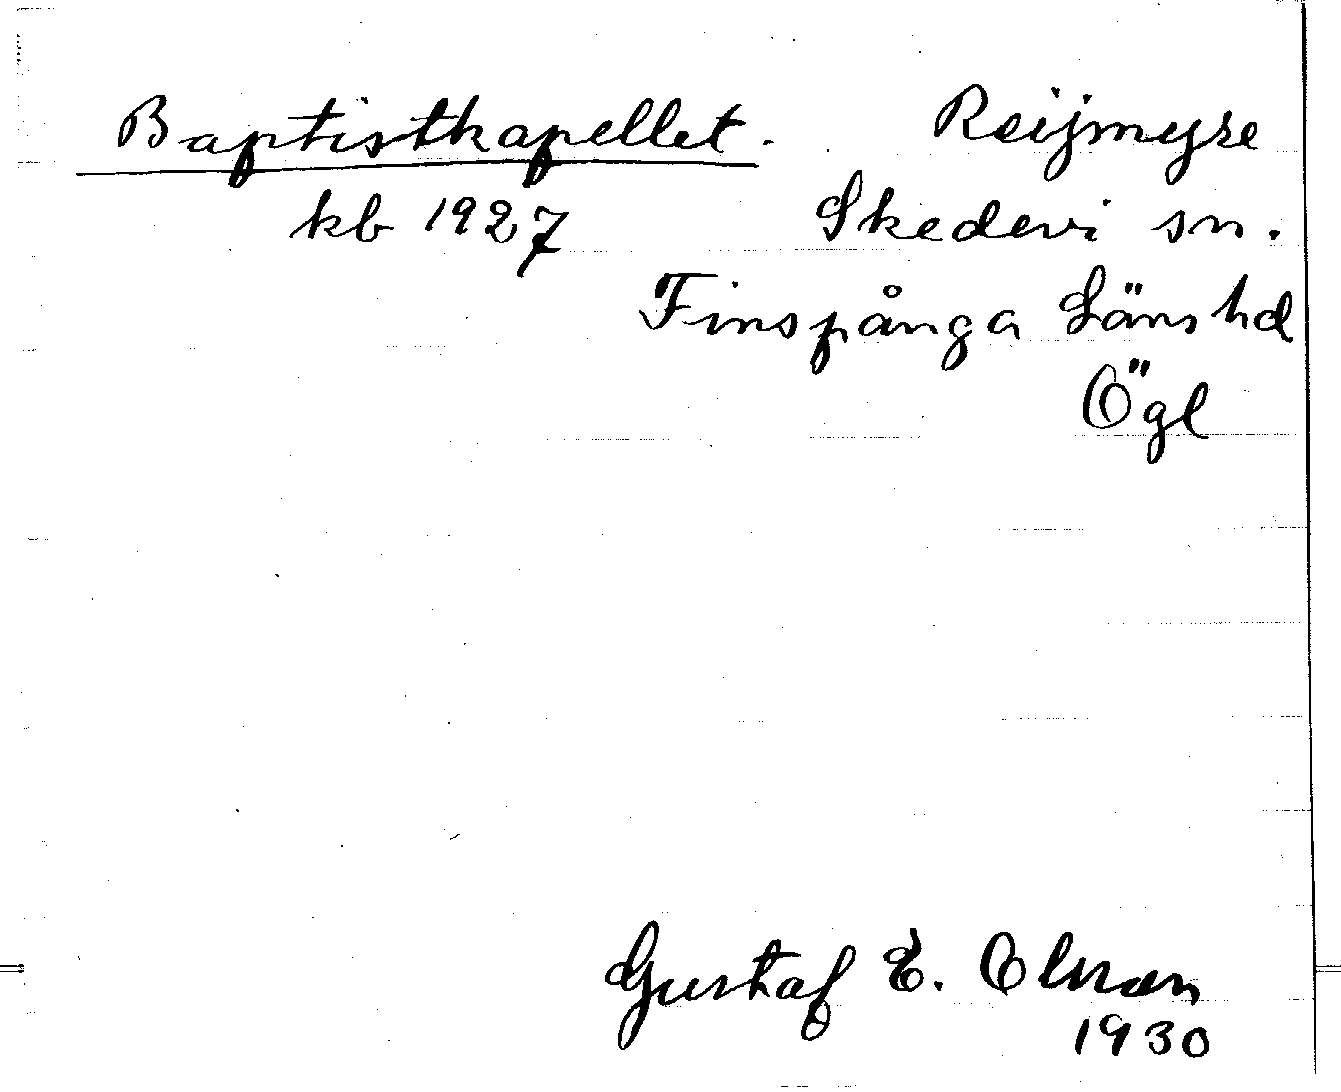 Baptistkapellet. Reijmyre
kb 1927 Skedevi sn.
Finspånga Läns hd
Ögl
Gustaf E. Olsson
1930